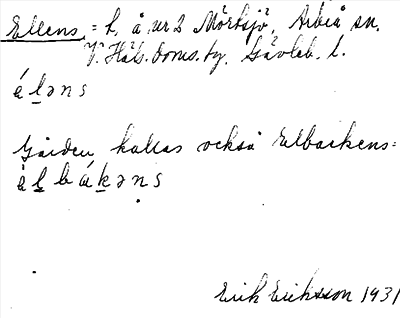 Ellens = h. å nr 2 Mörtsjö, Arbrå sn.
V. Häls. doms. hg, Gävleb. l.
áləns
Gården kallas också Elbackens =
àlbákəns
Erik Eriksson 1931